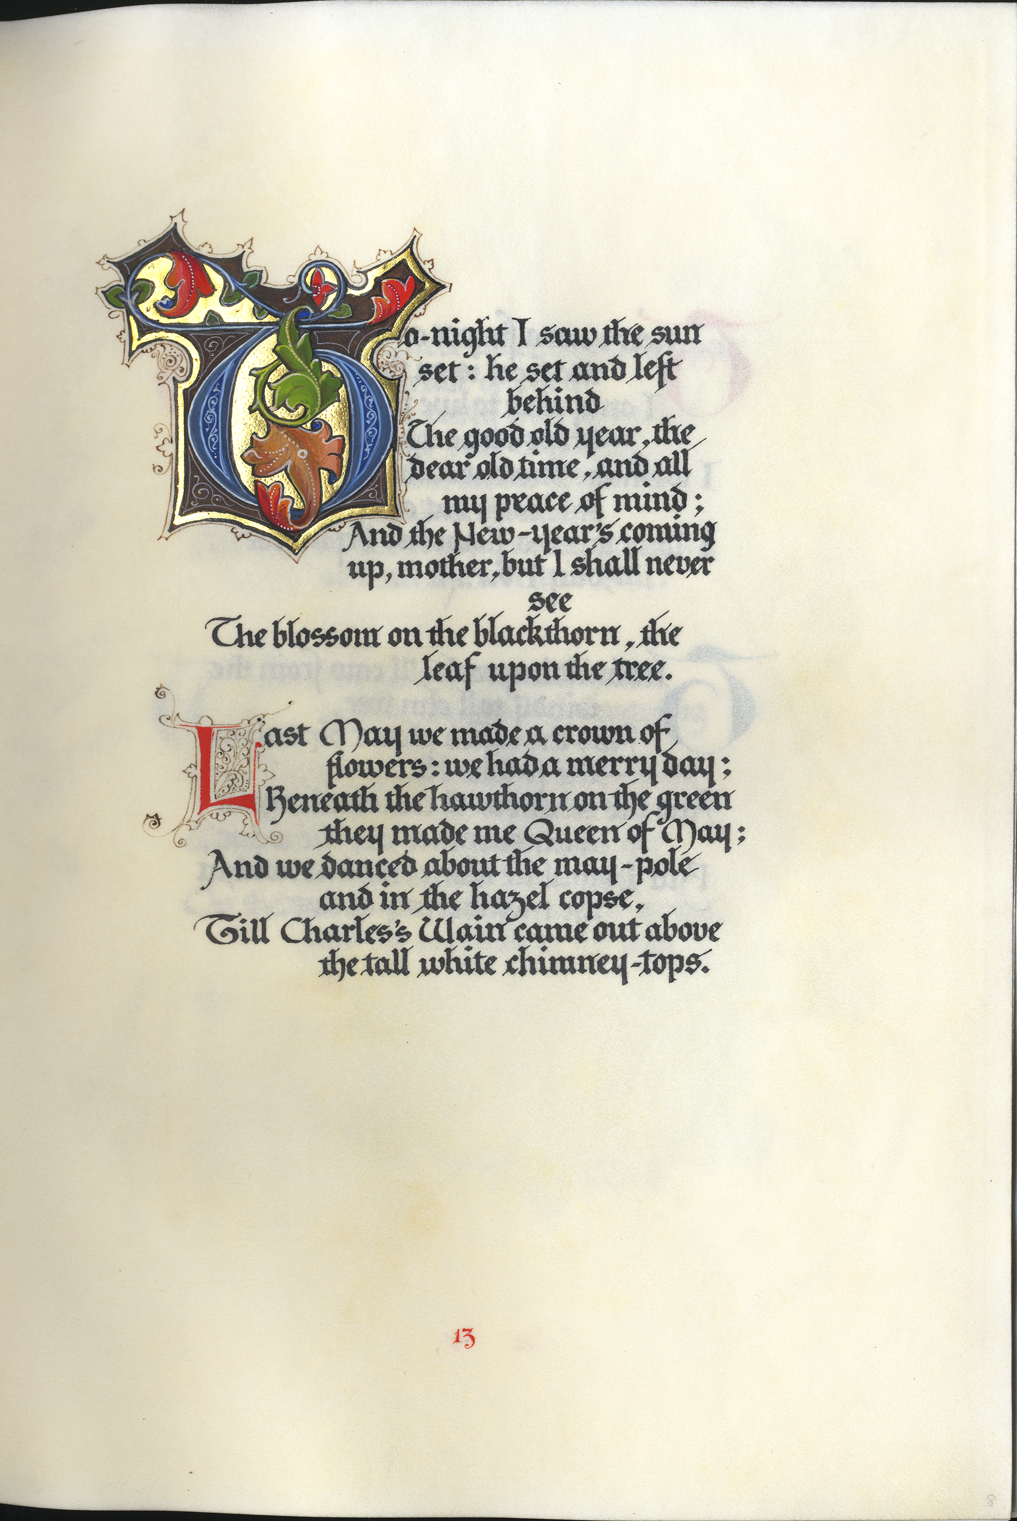 To-night I saw the sun
set: he set and left
behind
The good old year, the
dear old time, and all
my peace of mind;
And the New-year's coming
up, mother, but I shall never
see
The blossom on the blackthorn, the
leaf upon the tree.
Last May we made a crown of
flowers: we had a merry day;
Beneath the hawthorn on the green
they made me Queen of May;
And we danced about the may-pole
and in the hazel copse,
Till Charles's Wain came out above
the tall white chimney-tops.
13
8